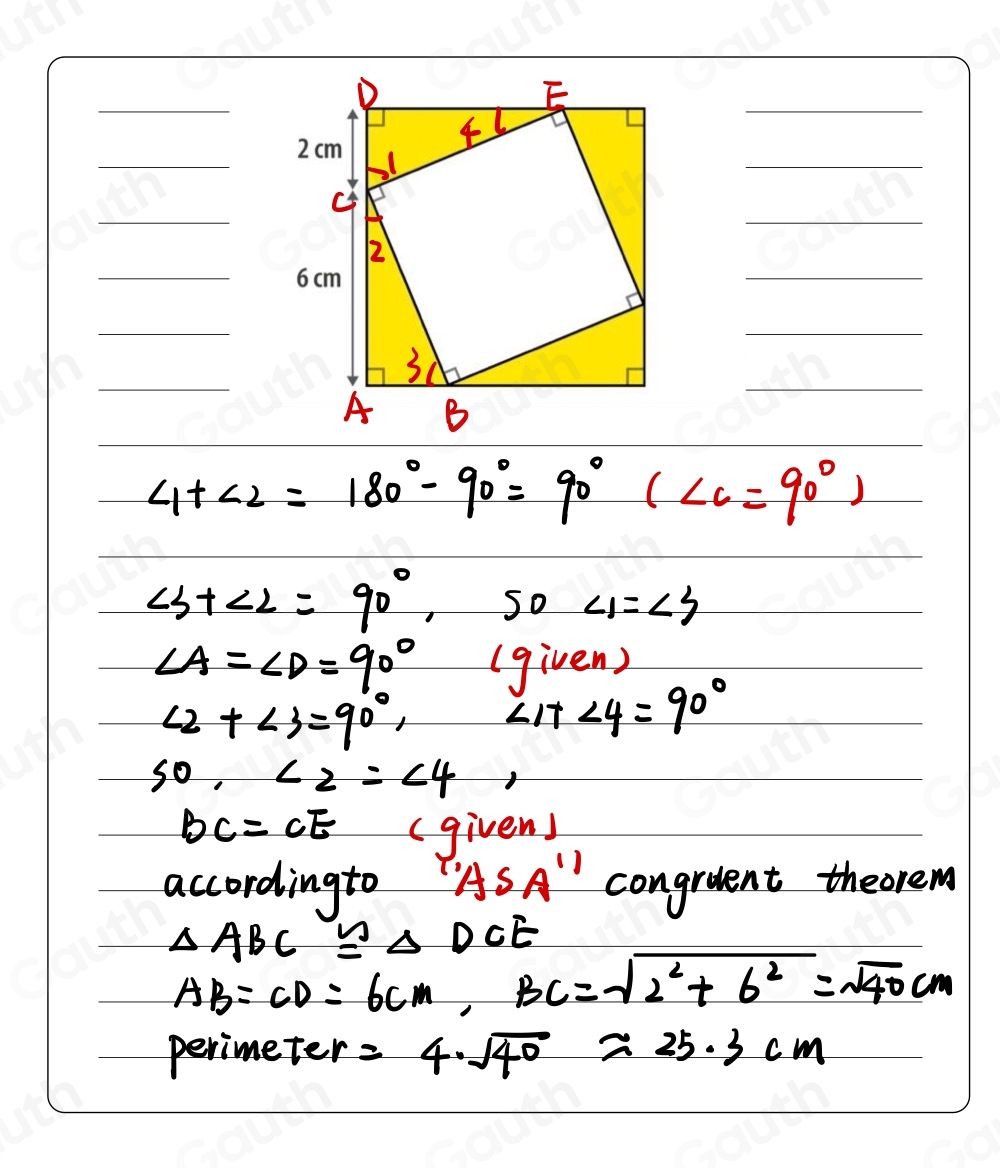 D E
4
2 cm
1
C
2
6 cm
3
A B
∠1+∠2 = 180°-90°= 90° (∠C=90°)
∠3+∠2 = 90°, so ∠1=∠3
∠A=∠D=90° (given)
∠2+∠3=90°, ∠1+∠4=90°
so, ∠2=∠4,
BC=CE (given)
accordingto "ASA" congruent theorem
△ABC ≌ △DCE
AB=CD=6cm, BC=√(2²+6²)=√40cm
perimeter= 4·√40 ≈ 25.3 cm
Gauth